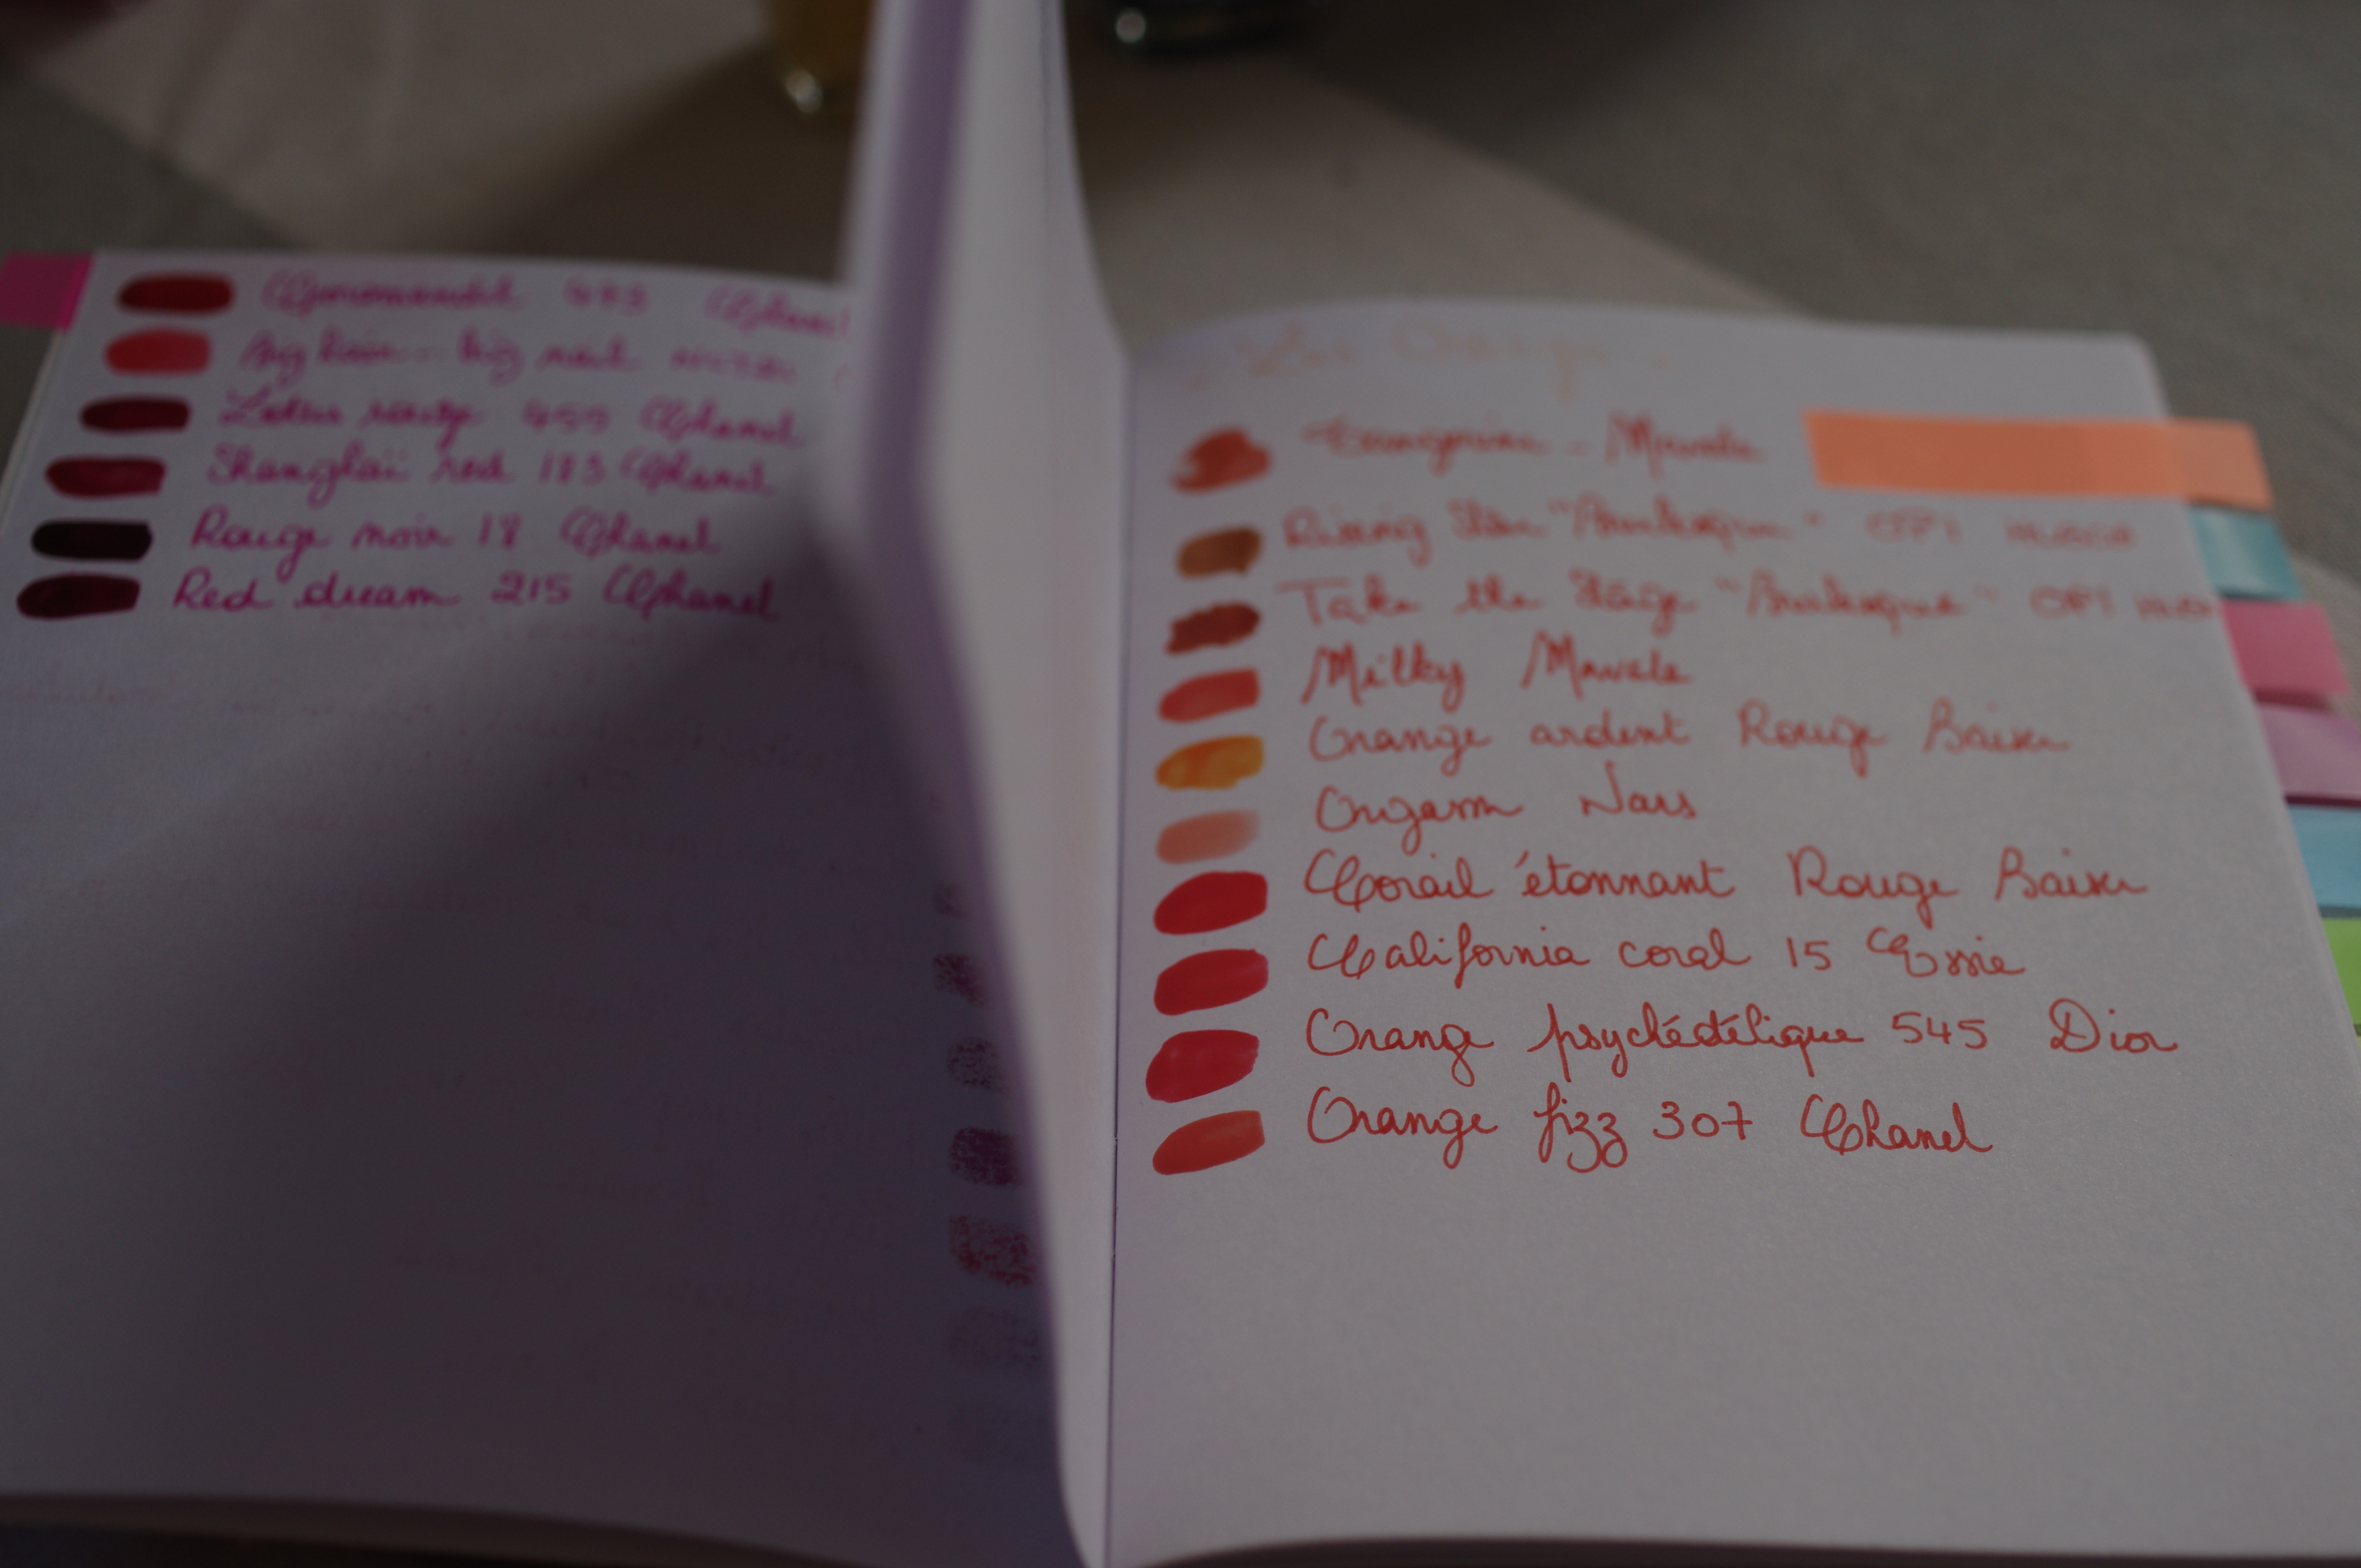 Chanel
Big hair... big nail
Lotus rouge 455 Chanel
Shanghaï red 183 Chanel
Rouge noir 18 Chanel
Red dream 215 Chanel
Les Orange
Mavala
Rising Star "Burlesque" OPI
Take the Stage "Burlesque" OPI
Milky Mavala
Orange ardent Rouge Baiser
Orgasm Nars
Corail étonnant Rouge Baiser
California coral 15 Essie
Orange psychédélique 545 Dior
Orange fizz 307 Chanel